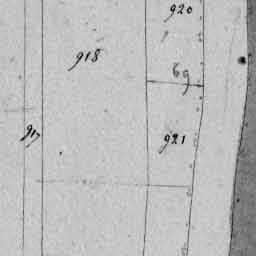 920
918
69
917
921